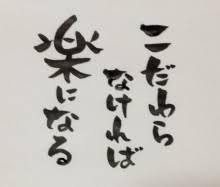 こだわら
なければ
楽になる